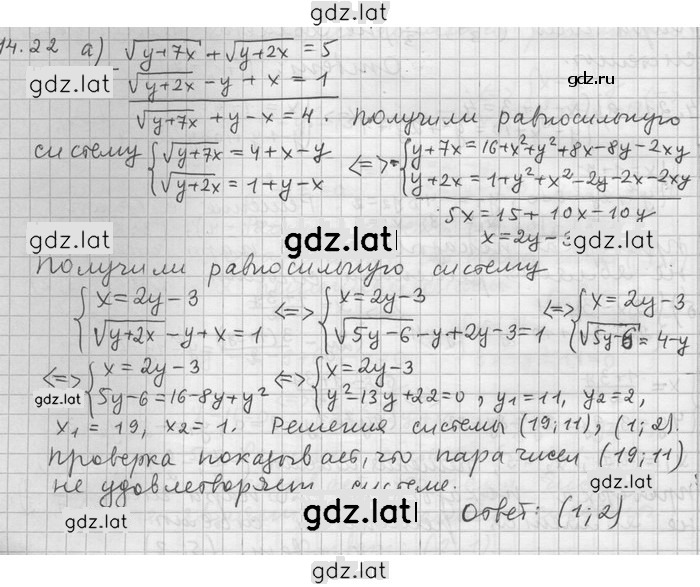 gdz.lat
14.22 а) √(y+7x) + √(y+2x) = 5
gdz.lat
gdz.ru
√(y+2x) - y + x = 1
√(y+7x) + y - x = 4. Получили равносильную
систему { √(y+7x) = 4+x-y <=> { y+7x = 16+x²+y²+8x-8y-2xy
√(y+2x) = 1+y-x y+2x = 1+y²+x²-2y-2x-2xy
5x = 15+10x-10y
gdz.lat gdz.lat
x = 2y -
получили равносильную систему
{ x = 2y-3 <=> { x = 2y-3 <=> { x = 2y-3
√(y+2x) - y + x = 1 √(5y-6) - y + 2y - 3 = 1 √(5y-6) = 4-y
<=> { x = 2y-3 <=> { x = 2y-3
gdz.lat
5y-6 = 16-8y+y² y²-13y+22 = 0, y₁ = 11, y₂ = 2,
x₁ = 19, x₂ = 1. Решения системы (19; 11), (1; 2).
Проверка показывает, что пара чисел (19; 11)
не удовлетворяет системе.
gdz.lat
gdz.lat gdz.lat
Ответ: (1; 2)
gdz.lat